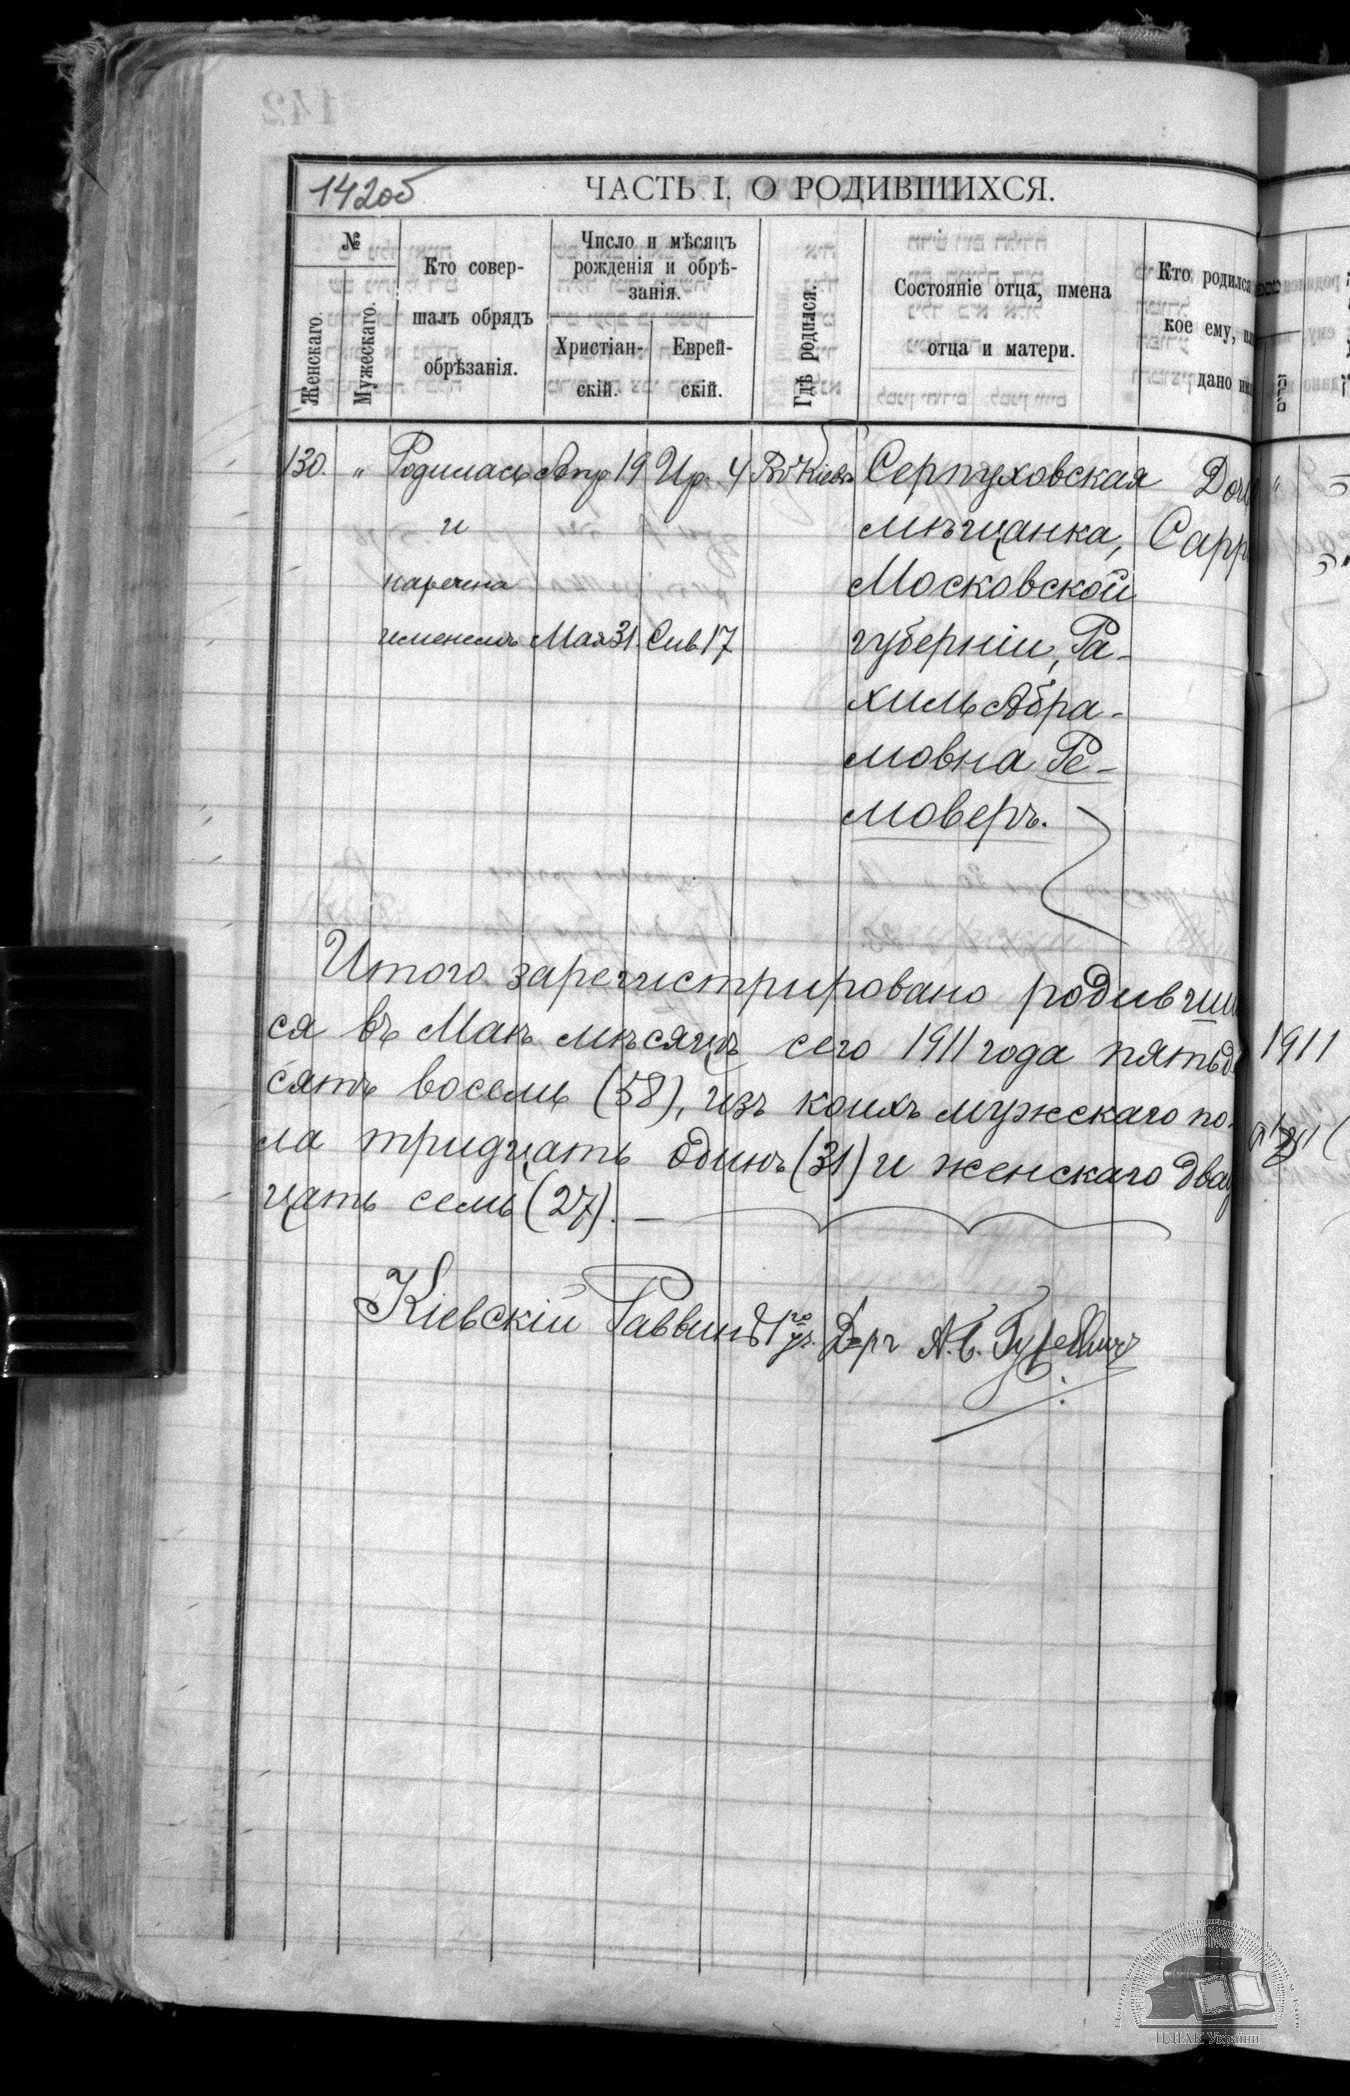 142об
ЧАСТЬ I. О РОДИВШИХСЯ.
№
Женскаго.
Мужескаго.
Кто совер-
шалъ обрядъ
обрѣзанія.
Число и мѣсяцъ
рожденія и обрѣ-
занія.
Христіан-
скій.
Еврей-
скій.
Гдѣ родился.
Состояніе отца, имена
отца и матери.
Кто родился
кое ему,
дано
130. " Родилась Апр 19 Ир. 4 Въ Кіевѣ Серпуховская
и мѣщанка, Сарр
наречена Московской
именемъ Мая 31. Сив 17 губерніи, Ра-
хиль Абра-
мовна Ре-
моверъ.
Итого зарегистрировано родивши
ся въ Маѣ мѣсяцѣ сего 1911 года пятьд
сятъ восемь (58), изъ коихъ мужскаго по-
ла тридцать одинъ (31) и женскаго двад
цать семь (27). —
Кіевскій Раввинъ 1го уч. А. Б. Гуревичъ
1911
ЦДІАК України